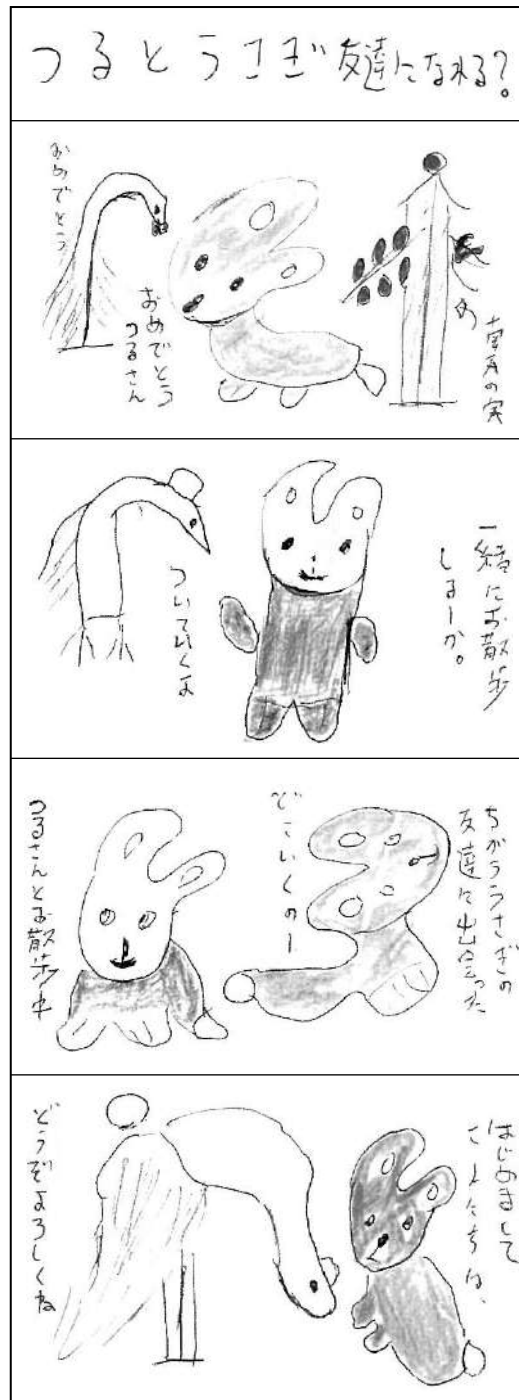 つるとうさぎ友達になれる?
南天の実
おめでとう
つるさん
おめでとう
一緒にお散歩
しよーか。
ついていくよ
ちがううさぎの
友達に出会った
どこいくのー
つるさんとお散歩中
はじめまして
こんにちは、
どうぞよろしくね